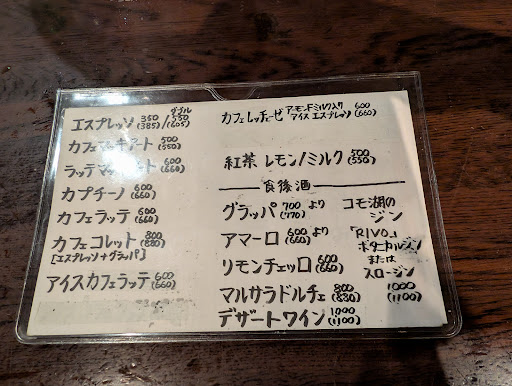 ダブル
エスプレッソ 350(385)/550(605)
カフェマキアート 500(550)
ラッテマキアート 600(660)
カプチーノ 600(660)
カフェラッテ 600(660)
カフェコレット 800(880)
[エスプレッソ+グラッパ]
アイスカフェラッテ 600(660)
カフェレッチェーゼ アーモンドミルク入り アイスエスプレッソ 600(660)
紅茶 レモン/ミルク 500(550)
食後酒
グラッパ 700(770)より
アマーロ 600(660)より
リモンチェッロ 600(660)
マルサラドルチェ 800(880)
デザートワイン 1000(1100)
コモ湖の
ジン
「RIVO」
ボタニカルジン
または
スロージン
1000
(1100)